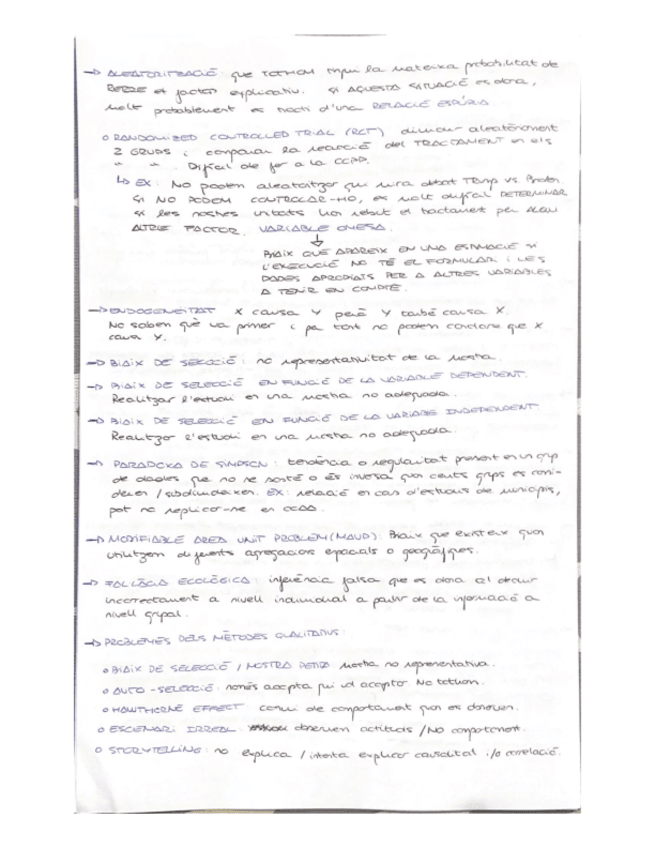 → ALEATORITZACIÓ: que TOTHOM tingui la mateixa probabilitat de
REBRE el factor explicatiu. SI AQUESTA SITUACIÓ es dona,
molt probablement es tracti d'una RELACIÓ ESPÚRIA.
o RANDOMIZED CONTROLLED TRIAL (RCT) dividir aleatòriament
2 GRUPS i comparar la reacció del TRACTAMENT en els
" ". Difícil de fer a la CCPP.
↳ EX: No podem aleatoritzar qui mira debat Trump vs. Biden.
SI NO PODEM CONTROLAR-HO, es molt difícil DETERMINAR
si les nostres unitats han rebut el tractament per ALGUN
ALTRE FACTOR. VARIABLE OMESA.
↓
BIAIX QUE APAREIX EN UNA ESTIMACIÓ SI
L'EXECUCIÓ NO TÉ EL FORMULAR I LES
DADES APROPIADES PER A ALTRES VARIABLES
A TENIR EN COMPTE.
→ ENDOGENEITAT X causa Y però Y també causa X.
No sabem què va primer i per tant no podem concloure que X
causa Y.
→ BIAIX DE SELECCIÓ: no representativitat de la mostra.
→ BIAIX DE SELECCIÓ EN FUNCIÓ DE LA VARIABLE DEPENDENT.
Realitzar l'estudi en una mostra no adequada.
→ BIAIX DE SELECCIÓ EN FUNCIÓ DE LA VARIABLE INDEPENDENT
Realitzar l'estudi en una mostra no adequada.
→ PARADOXA DE SIMPSON: tendència o regularitat present en un grup
de dades que no se sosté o és inversa quan certs grups es consi-
deren / subdivideixen. EX: relació en cas d'estudis de municipis,
pot no replicar-se en CCAA.
→ MODIFIABLE AREA UNIT PROBLEM (MAUP): Biaix que existeix quan
utilitzem diferents agregacions espacials o geogràfiques.
→ FAL·LÀCIA ECOLÒGICA: inferència falsa que es dona al deduir
incorrectament a nivell individual a partir de la informació a
nivell grupal.
→ PROBLEMES DELS MÈTODES QUALITATIUS:
o BIAIX DE SELECCIÓ / MOSTRA PETITA mostra no representativa.
o AUTO-SELECCIÓ: només accepta qui vol acceptar. No tothom.
o HAWTHORNE EFFECT canvi de comportament quan es observen.
o ESCENARI IRREAL observen actituds / No comportament.
o STORYTELLING: no explica / intenta explicar causalitat i/o correlació.